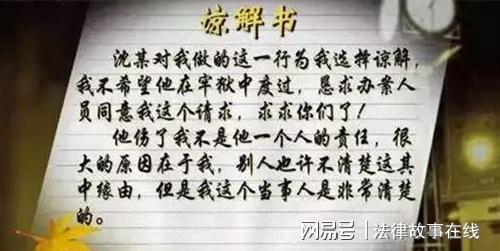 谅解书
沈某对我做的这一行为我选择谅解，
我不希望他在牢狱中度过，恳求办案人
员同意我这个请求，求求你们了！
他伤了我不是他一个人的责任，很
大的原因在于我，别人也许不清楚这其
中缘由，但是我这个当事人是非常清楚
的。
网易号 | 法律故事在线